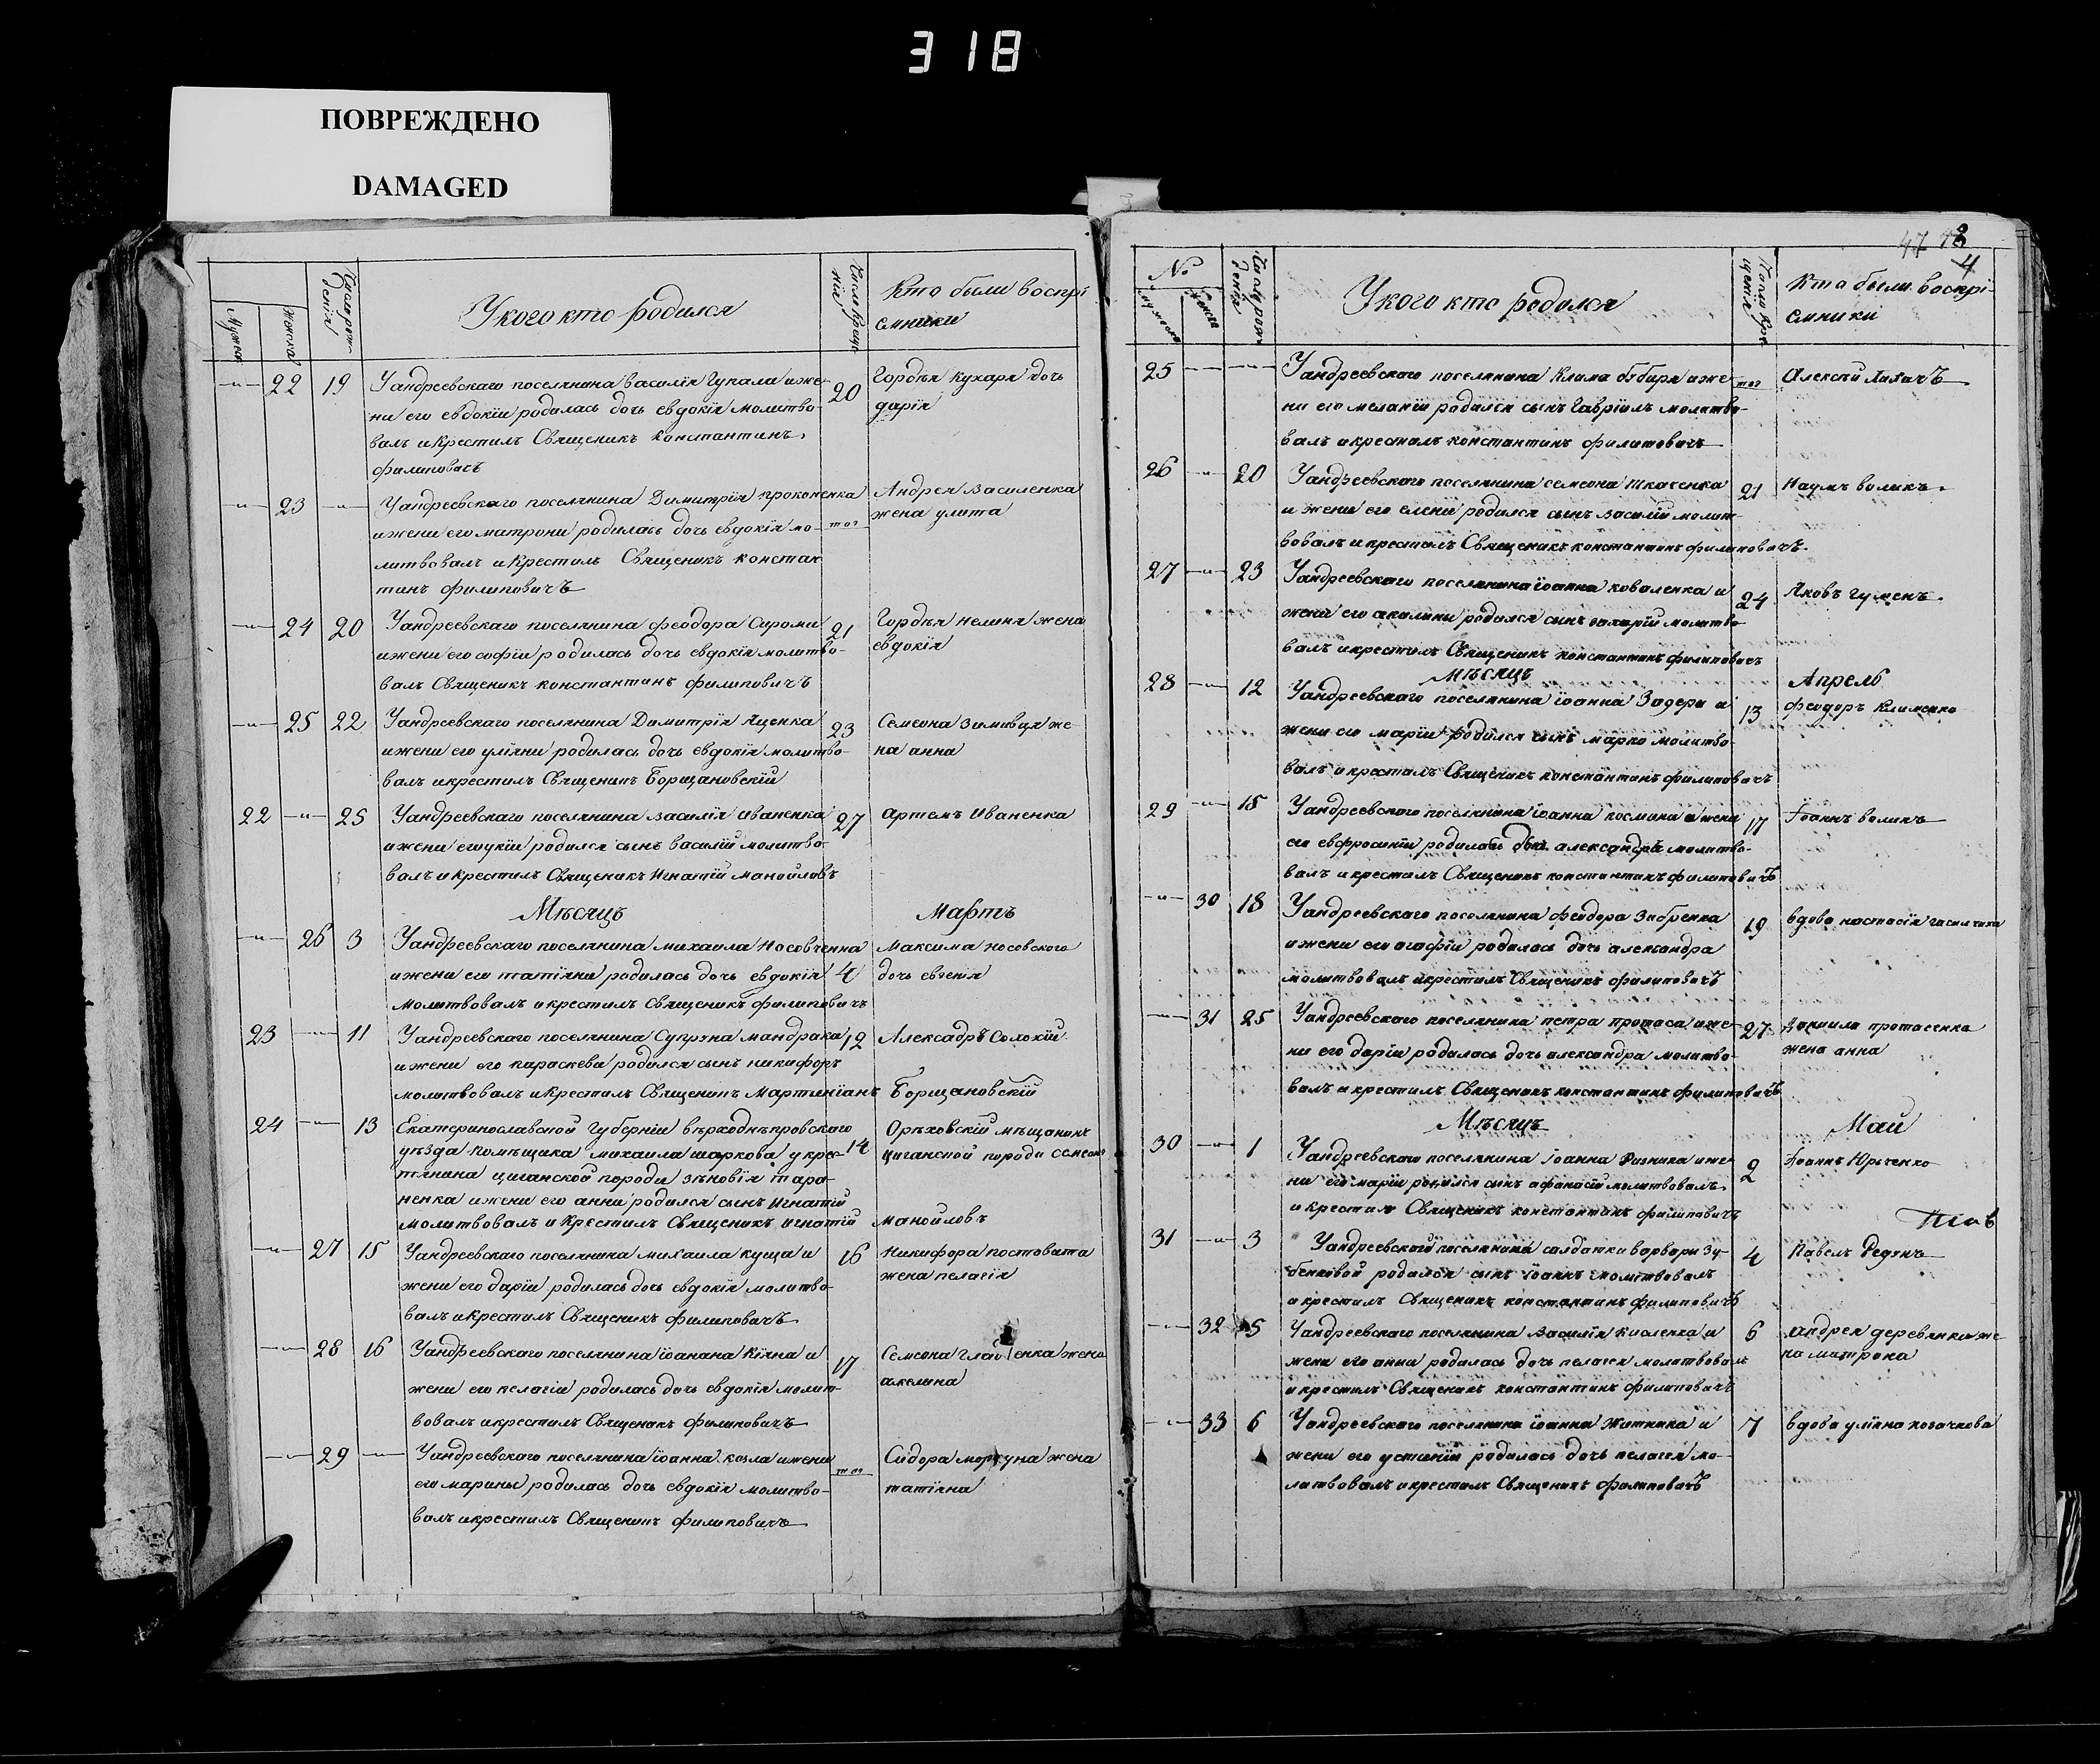 318
ПОВРЕЖДЕНО
DAMAGED
Мужеск
Женска
Число рож-
денія
У кого кто родился
Число креще
нія
Кто были воспрі
емники
22 19 У андреевскаго поселянина василія Гупала и же-
ни его евдокіи родилась дочь евдокія молитво-
валъ и крестилъ Священикъ константинъ
филиповичъ
20
Гордѣя кухаря дочь
дарія
23 У андреевскаго поселянина Димитрія прокопенка
и жени его матрони родилась дочь евдокія мо-
литвовалъ и крестилъ Священикъ констан
тинъ филиповичъ
тог
Андрея василенка
жена улита
24 20 У андреевскаго поселянина феодора Сироти
и жени его софіи родилась дочь евдокія молитво-
валъ Священикъ константинъ филиповичъ
21
Гордѣя нелиня жена
евдокія
25 22 У андреевскаго поселянина Димитрія Яценка
и жени его уліяни родилась дочь евдокія молитво-
валъ и крестилъ Священикъ Борщановскій
23
Семеона Зимивца же
на анна
22 25 У андреевскаго поселянина василія иваненка
и жени его укіи родился сынъ василій молитво-
валъ и крестилъ Священикъ Игнатій Манойловъ
27
Артемъ Иваненка
Мѣсяцъ Мартъ
26 3 У андреевскаго поселянина михаила Носовченка
и жени его татіяни родилась дочь евдокія
молитвовалъ и крестилъ Священикъ филиповичъ
4
Максима носовского
дочь евгенія
23 11 У андреевскаго поселянина Супруна мандрика
и жени его параскева родился сынъ никифоръ
молитвовалъ и крестилъ Священикъ Мартиніанъ Борщановскій
12
Александръ Солохій
24 13 Екатеринославской Губерніи вѣрходнѣпровскаго
уѣзда помѣщика михаила шаркова у крес-
тянина циганской породи зѣновія тара-
ненка и жени его анни родился сынъ игнатій
молитвовалъ и крестилъ Священикъ игнатій манойловъ
14
Орѣховскій мѣщанинъ
циганской породи семеонъ
27 15 У андреевскаго поселянина михаила куща и
жени его даріи родилась дочь евдокія молитво-
валъ и крестилъ Священикъ филиповичъ
16
Никифора постовита
жена пелагія
28 16 У андреевскаго поселянина іоанана Кіяна и
жени его пелагіи родилась дочь евдокія молит-
вовалъ и крестилъ Священикъ филиповичъ
17
Семеона енка жена
акелина
29 У андреевскаго поселянина іоанна козла и жени
его марины родилась дочь евдокія молитво-
валъ и крестилъ Священикъ филиповичъ
тог
Сидора моргуна жена
татіяна
47
4
№
мужеска
женска
Число рож
денія
У кого кто родился
Число кре
щенія
Кто были воспрі-
емники
25 У андреевскаго поселянина клима и же-
ни его меланіи родился сынъ гавріилъ молитво-
валъ и крестилъ константинъ филиповичъ
тог
Алексѣй Лихачъ
26 20 У андреевскаго поселянина семеона ткаченка
и жени его елени родился сынъ василій молит-
вовалъ и крестилъ Священикъ константинъ филиповичъ
21
Наумъ воликъ
27 23 У андреевскаго поселянина іоанна коваленка и
жени его акилины родился сынъ захарій молитво
валъ и крестилъ Священикъ константинъ филиповичъ
24
Яковъ гуменъ
Мѣсяцъ Апрель
28 12 У андреевскаго поселянина іоанна Задери и
жени его маріи родился сынъ марко молитво-
валъ и крестилъ Священикъ константинъ филиповичъ
13
феодоръ Клименко
29 15 У андреевскаго поселянина іоанна космина и жени
его евфросиніи родился александръ молитво-
валъ и крестилъ Священикъ константинъ филиповичъ
17
Іоаннъ воликъ
30 18 У андреевскаго поселянина феодора Забренка
и жени его агафіи родилась дочь александра
молитвовалъ и крестилъ Священикъ филиповичъ
19
вдова настасія
31 25 У андреевскаго поселянина петра протаса и же-
ни его даріи родилась дочь александра молитво-
валъ и крестилъ Священикъ константинъ филиповичъ
27
Даниила протасенка
жена анна
Мѣсяцъ Май
30 1 У андреевскаго поселянина іоанна Ризника и же
ни его маріи родился сынъ афанасій молитвовалъ
и крестилъ Священикъ константинъ филиповичъ
2
Іоаннъ Юрченко
31 3 У андреевскаго поселянина солдатки варвари Зу-
бенковой родился сынъ іоаннъ молитвовалъ
и крестилъ Священикъ константинъ филиповичъ
4
Павелъ Редунъ
32 5 У андреевскаго поселянина василія кисленка и
жени его анни родилась дочь пелагея молитвовалъ
и крестилъ Священикъ константинъ филиповичъ
6
андрея деревянки же
на матрона
33 6 У андреевскаго поселянина іоанна житника и
жени его устиніи родилась дочь пелагея мо-
литвовалъ и крестилъ Священикъ филиповичъ
7
вдова уліяна козачкова